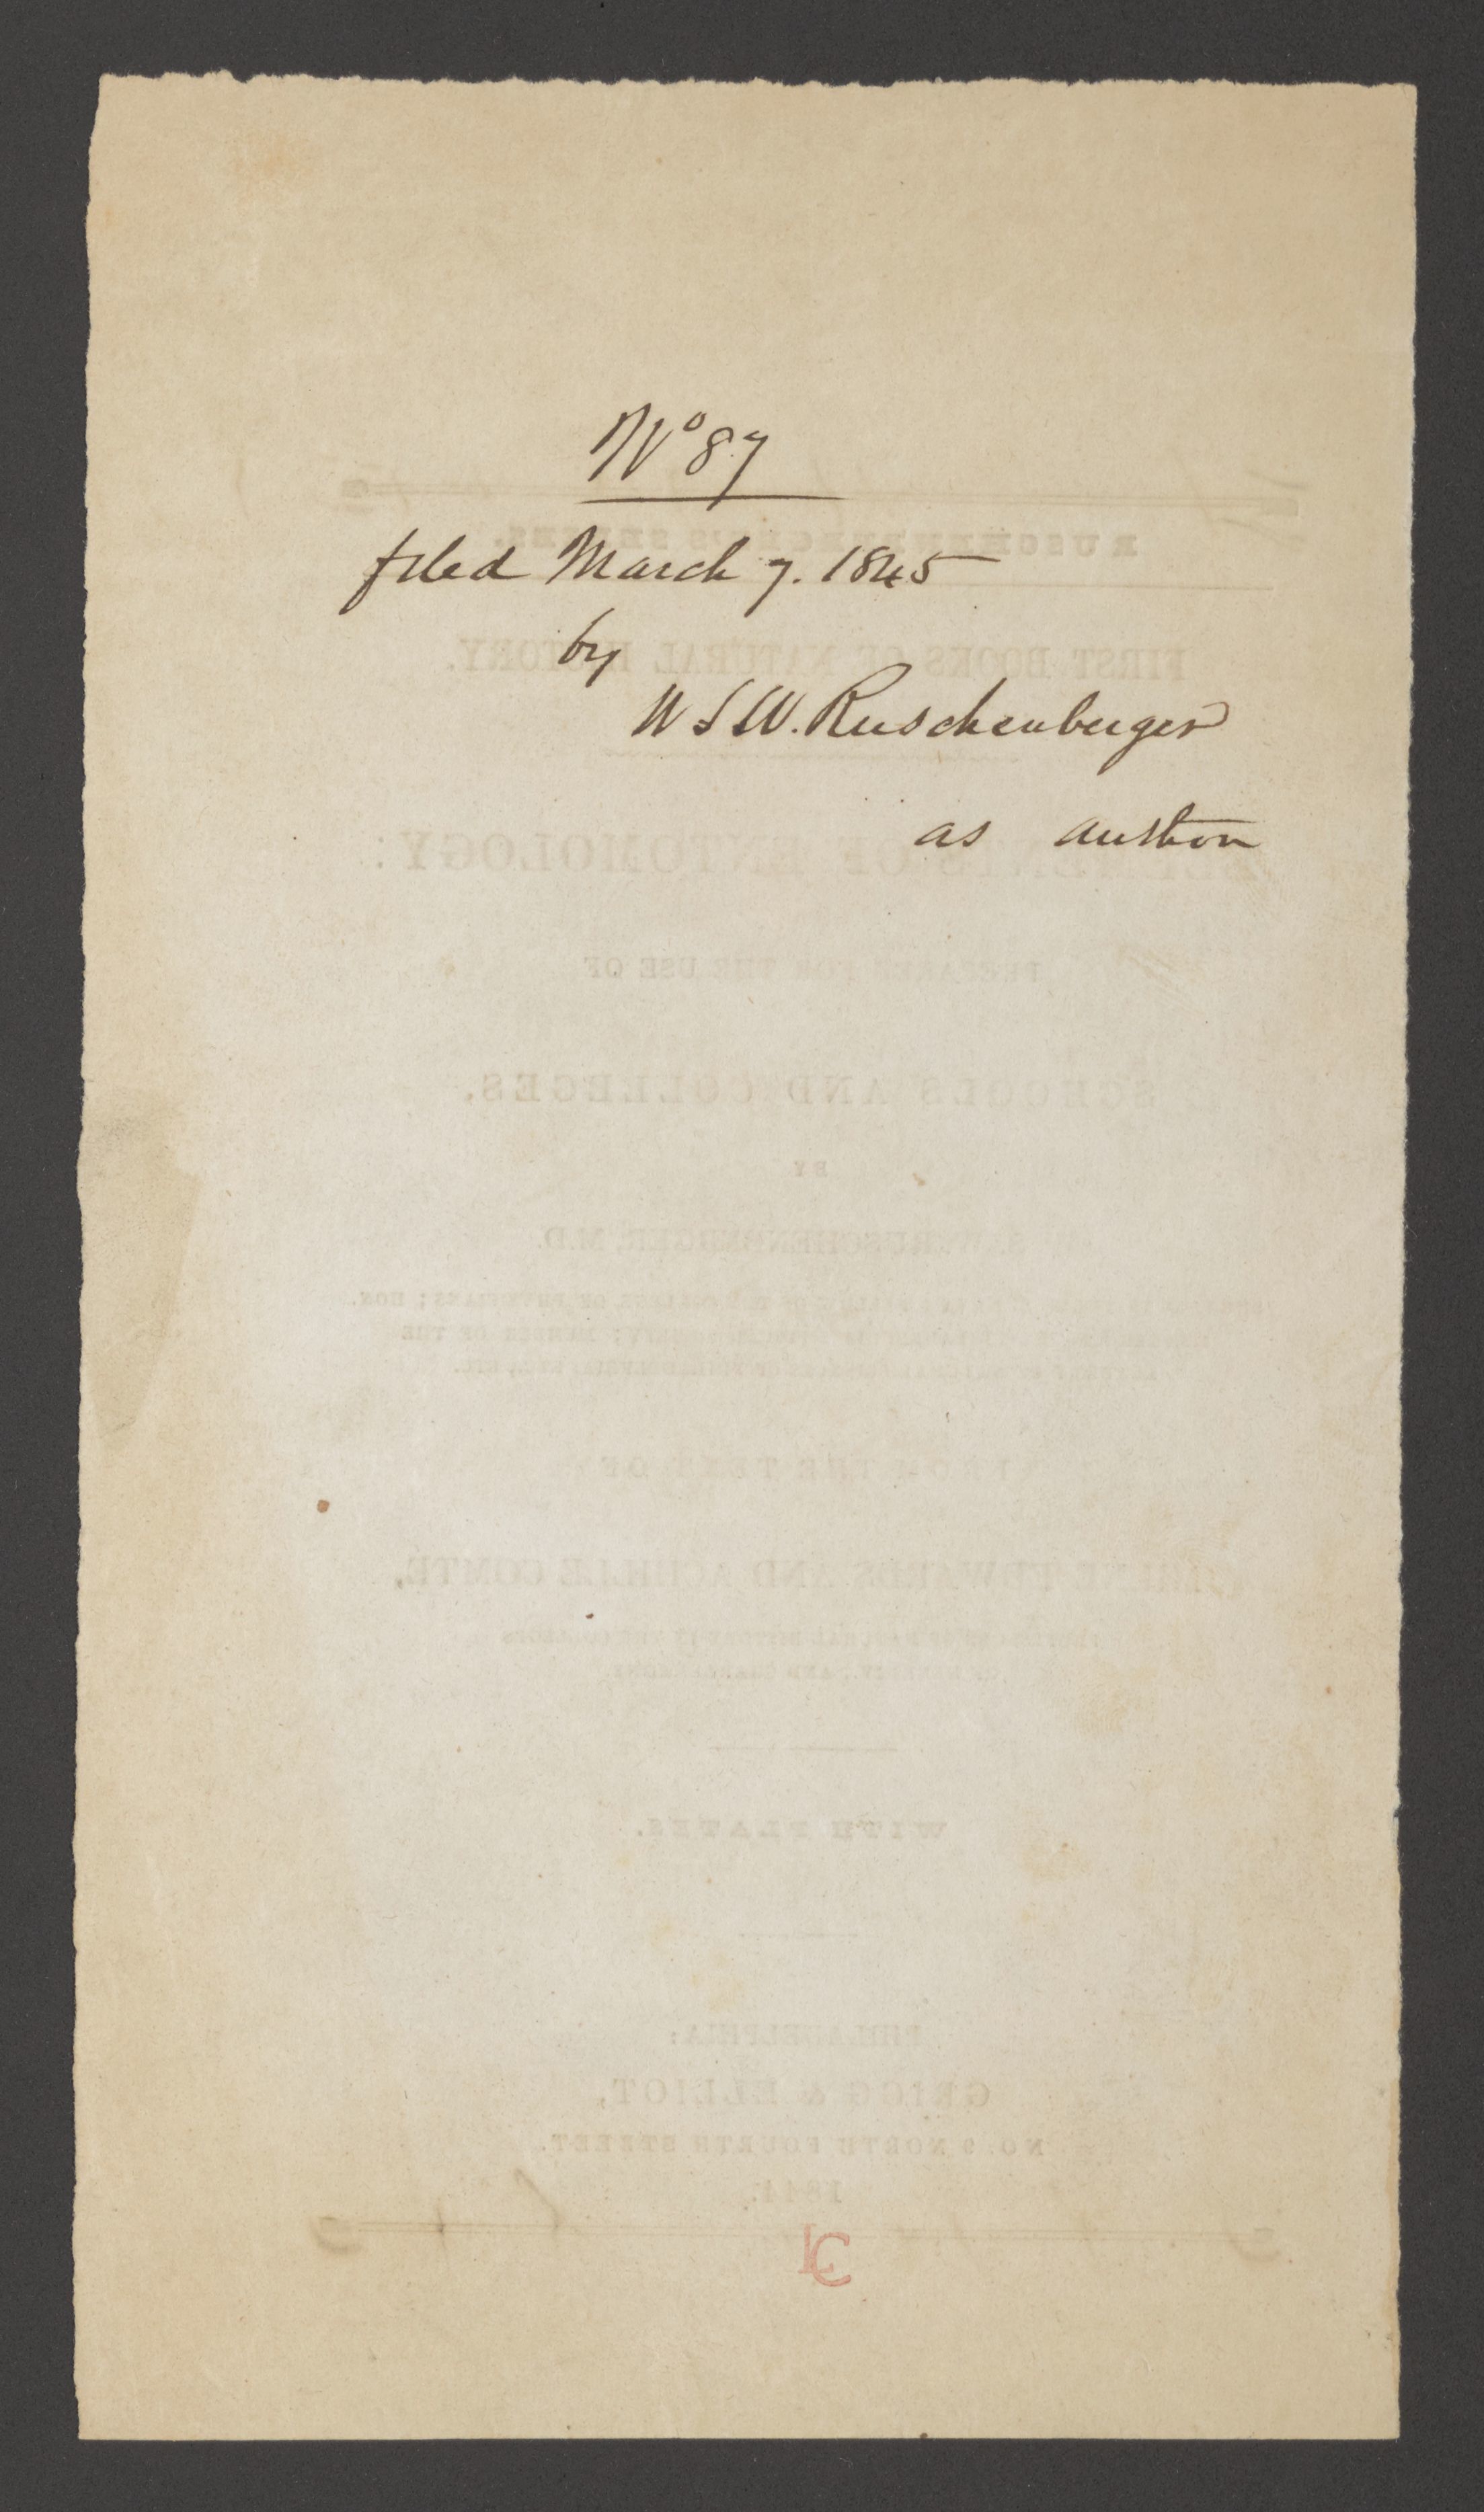 No 87
filed March 7. 1845
by
W S W. Ruschenberger
as author
RUSCHENBERGER'S SERIES.
FIRST BOOKS OF NATURAL HISTORY.
ELEMENTS OF ENTOMOLOGY:
PREPARED FOR THE USE OF
SCHOOLS AND COLLEGES.
BY
W. S. W. RUSCHENBERGER, M.D.
FROM THE TEXT OF
MILNE EDWARDS AND ACHILLE COMTE,
WITH PLATES.
PHILADELPHIA:
GRIGG & ELLIOT,
NO. 9 NORTH FOURTH STREET.
1844.
LC